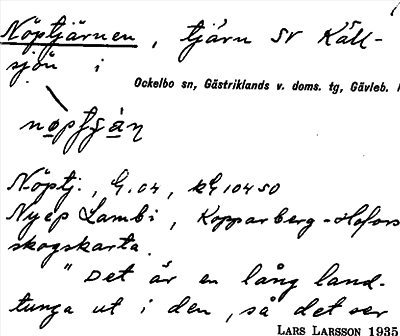 Nöptjärnen, tjärn SV Käll-
sjön i
Ockelbo sn, Gästriklands v. doms. tg, Gävleb.
Nöptj., G.04, kG 104 50
Nyep Lambi, Kopparberg-Hofors
skogskarta.
"Det är en lång land-
tunga ut i den, så det ser
LARS LARSSON 1935